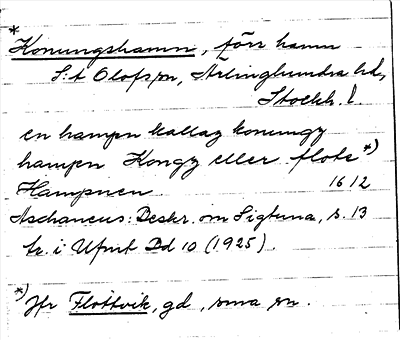 * Konungshamn, förr hamn
S:t Olofs sn, Ärlinghundra hd,
Stockh. l.
en hampn kallaz konungz
hampn Kongz eller flote *)
Hampnen 1612
Aschaneus: Beskr. om Sigtuna, s. 13
tr. i Ufmt Bd 10 (1925).
*) Jfr Flottvik, gd, sma sn.